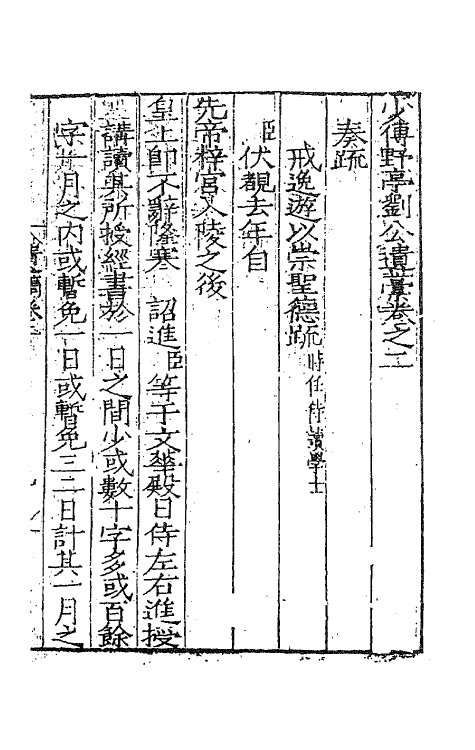 少傅野亭劉公遺藁卷之二
奏疏
戒逸遊以崇聖德疏時任侍讀學士
臣伏覩去年自
先帝梓宮入陵之後
皇上即不辭隆寒 詔進臣等于文華殿日侍左右進授
講讀與所授經書於一日之間少或數十字多或百餘
字廿月之内或暫免一日或暫免三二日計其一月之